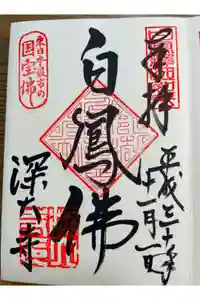 奉拝
平成三十年
十一月一日
白鳳佛
東日本最古の
国宝佛
深大寺